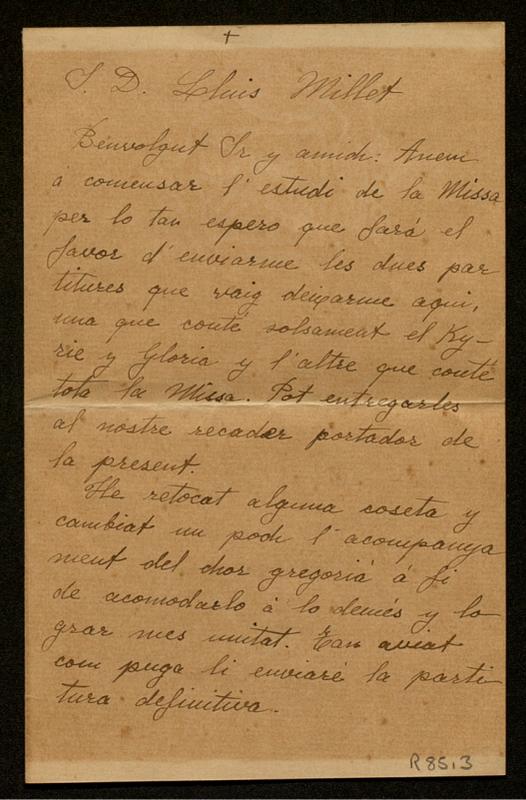 +
S. D. Lluis Millet
Benvolgut Sr y amich: Anem
á comensar l'estudi de la Missa
per lo tan espero que fará el
favor d'enviarme les dues par
titures que vaig deixarme aqui,
una que conté solsament el Ky-
rie y Gloria y l'altre que conté
tota la Missa. Pot entregarles
al nostre recader portador de
la present.
He retocat alguna coseta y
cambiat un poch l'acompanya
ment del chor gregoriá á fi
de acomodarlo á lo demés y lo
grar mes unitat. Tan aviat
com puga li enviaré la parti
tura definitiva.
R85,3